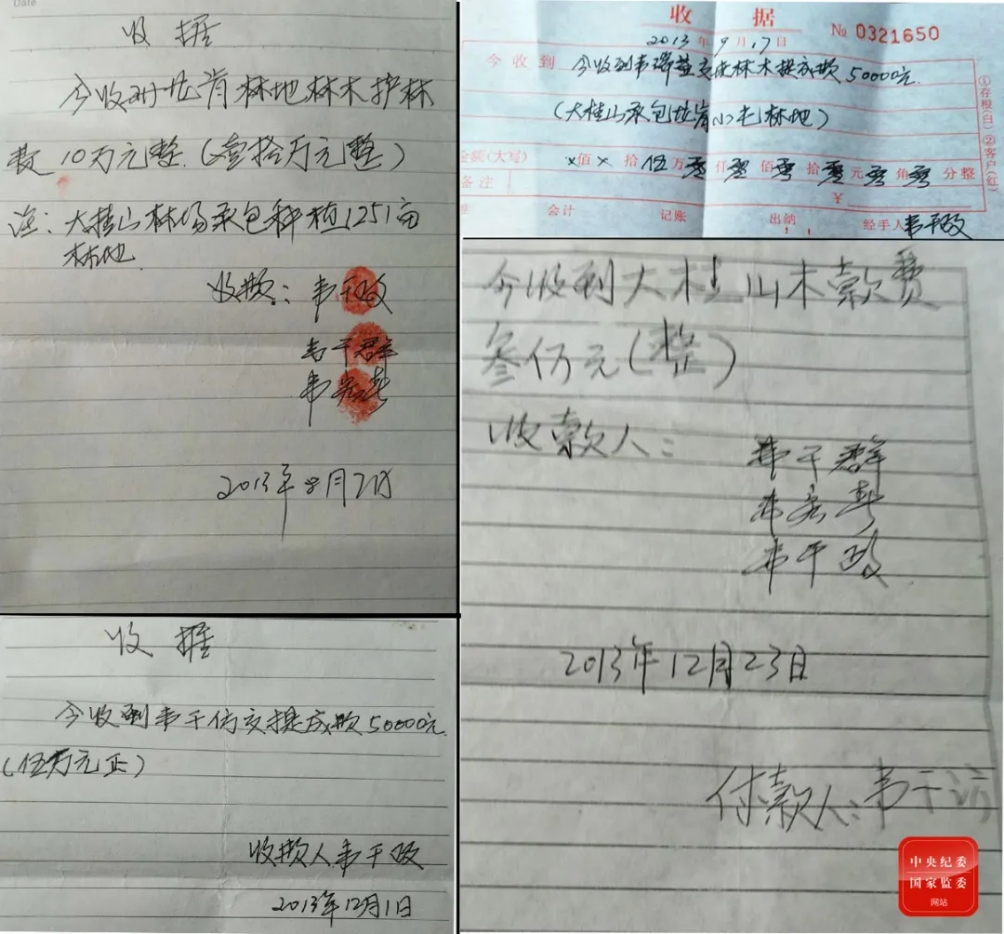 Date
收据
今收到 林地林木护林
款10万元整.(壹拾万元整)
注:大桂山林场承包种植1251亩
林地
收款:韦干政
韦干群
韦宏寿
2013年8月2日
收据
№ 0321650
2013年9月17日
今收到 今收到韦 交 林木提成款50000元
(大桂山承包 林地)
金额(大写) ×佰×拾伍万零仟零佰零拾零元零角零分整
备注
¥
会计 记账 出纳 经手人韦干政
①存根(白) ②客户(红)
今收到大桂山木款费
叁仟万元(整)
收款人:
韦干群
韦宏寿
韦干政
2013年12月23日
付款人:韦干访
收据
今收到韦干 交提成款50000元.
(伍万元正)
收款人韦干政
2013年12月1日
中央纪委
国家监委
网站